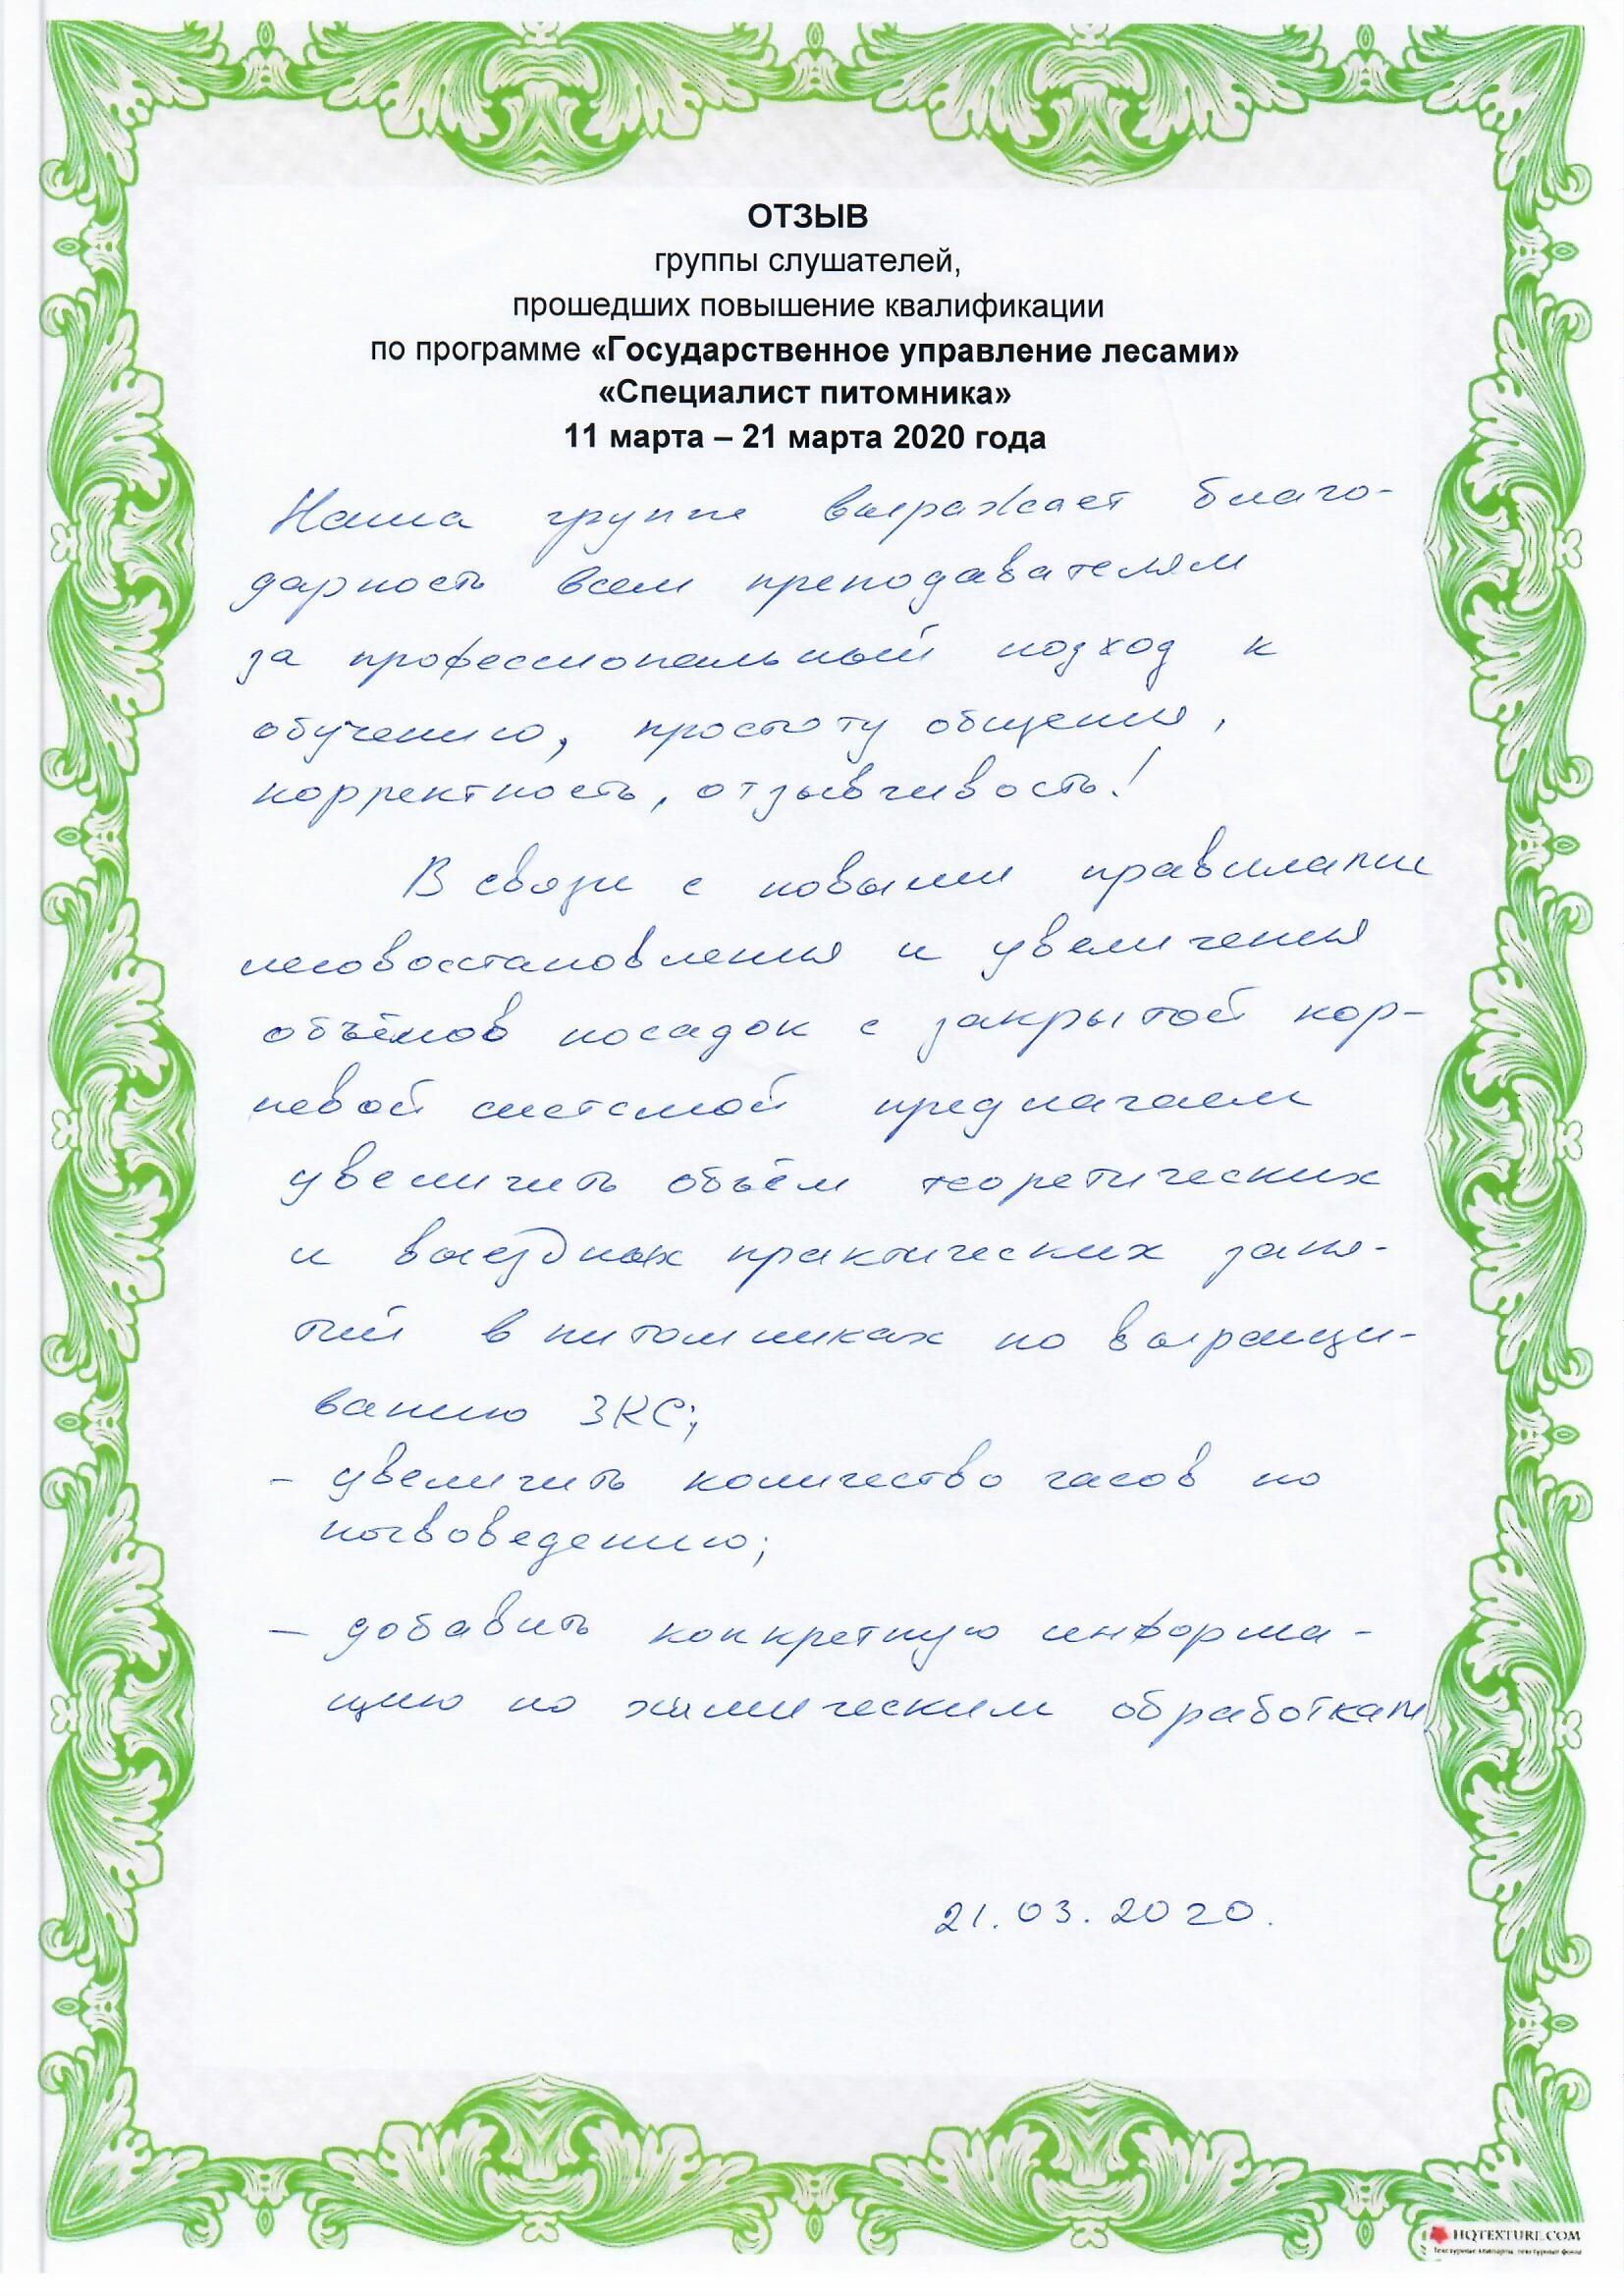 ОТЗЫВ
группы слушателей,
прошедших повышение квалификации
по программе «Государственное управление лесами»
«Специалист питомника»
11 марта – 21 марта 2020 года
Наша группа выражает благо-
дарность всем преподавателям
за профессиональный подход к
обучению, простоту общения,
корректность, отзывчивость!
В связи с новыми правилами
лесовосстановления и увеличения
объёмов посадок с закрытой кор-
невой системой предлагаем
увеличить объём теоретических
и выездных практических заня-
тий в питомниках по выращи-
ванию ЗКС;
- увеличить количество часов по
почвоведению;
- добавить конкретную информа-
цию по химическим обработкам
21.03.2020.
HQTEXTURE.COM